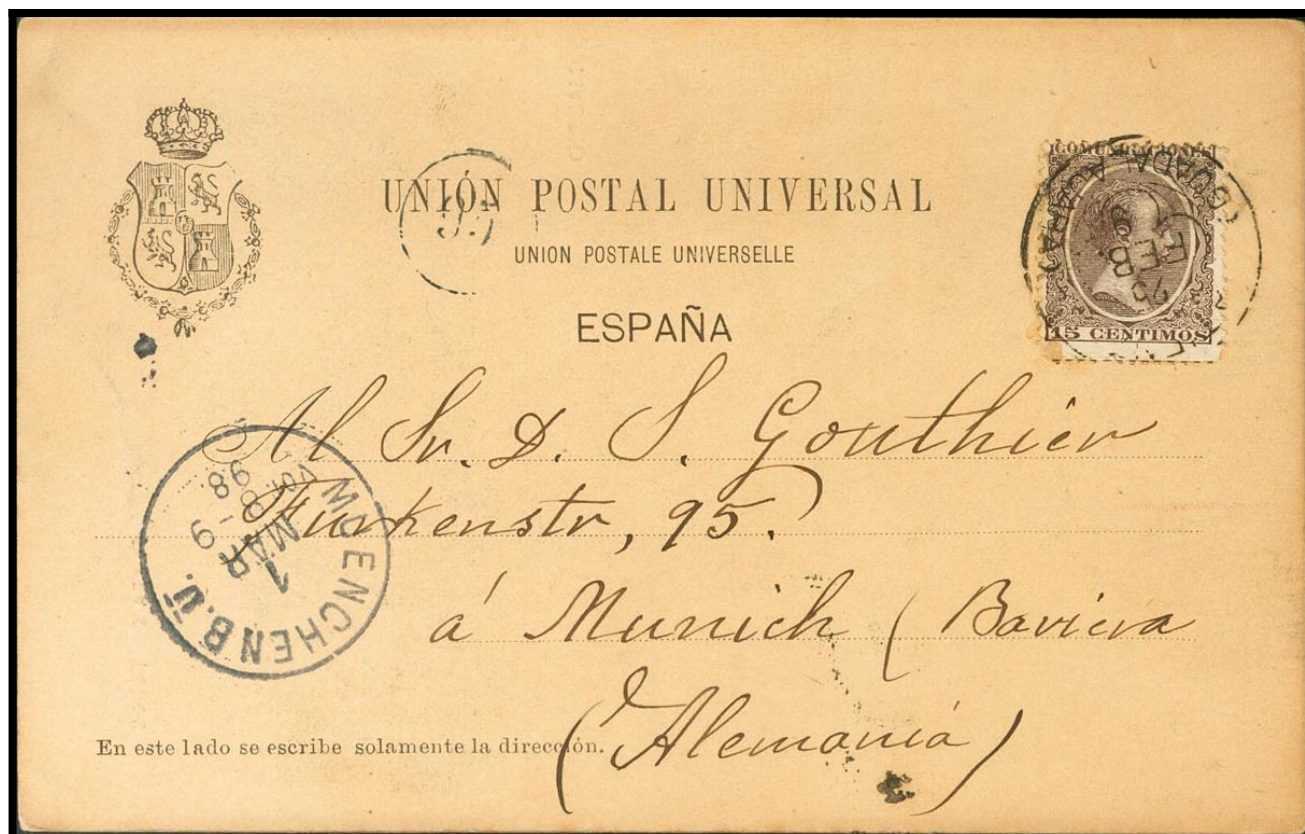 UNIÓN POSTAL UNIVERSAL
UNION POSTALE UNIVERSELLE
ESPAÑA
COMUNICACIONES
15 CENTIMOS
25
FEB.
Al Sr. D. S. Gouthier
Turkenstr, 95.
á Munich (Baviera
(Alemania)
MUENCHEN B.U.
1
MAR
8-9
98
En este lado se escribe solamente la dirección.